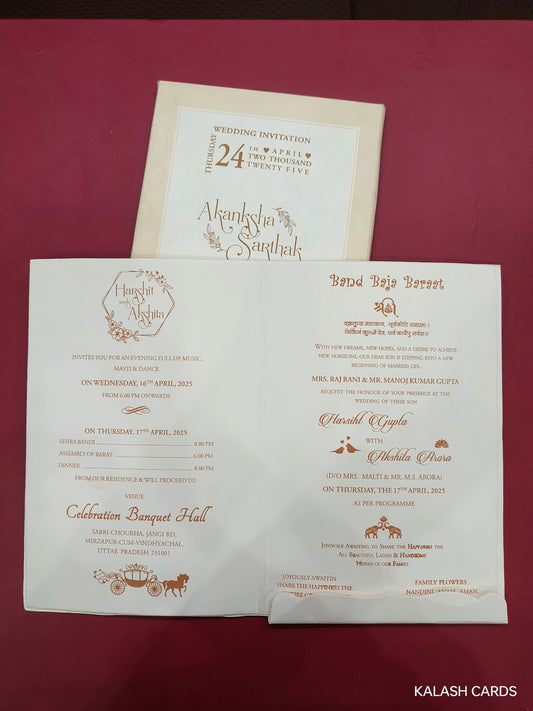 WEDDING INVITATION
THURSDAY
24TH APRIL
TWO THOUSAND
TWENTY FIVE
Akanksha
Sarthak
Harshit
with
Akshita
INVITES YOU FOR AN EVENING FULL OF MUSIC,
MASTI & DANCE
ON WEDNESDAY, 16TH APRIL, 2025
FROM 6.00 PM ONWARDS
ON THURSDAY, 17TH APRIL, 2025
SEHRA BANDI 8.00 PM
ASSEMBLY OF BARAT 6.00 PM
DINNER 8.00 PM
FROM OUR RESIDENCE & WILL PROCEED TO
VENUE
Celebration Banquet Hall
SABRI CHOURHA, JANGI RD,
MIRZAPUR-CUM-VINDHYACHAL,
UTTAR PRADESH 231001
Band Baja Baraat
श्री
वक्रतुण्ड महाकाय, सूर्यकोटि समप्रभः।
निर्विघ्नं कुरूमे देव, सर्व कार्येषु सर्वदा॥
WITH NEW DREAMS, NEW HOPES, AND A DESIRE TO ACHIEVE
NEW HORIZONS, OUR DEAR SON IS STEPPING INTO A NEW
BEGINNING OF MARRIED LIFE.
MRS. RAJ RANI & MR. MANOJ KUMAR GUPTA
REQUEST THE HONOUR OF YOUR PRESENCE AT THE
WEDDING OF THEIR SON
Harsikt Gupta
WITH
Akshila Arora
(D/O MRS. MALTI & MR. M.S. ARORA)
ON THURSDAY, THE 17TH APRIL, 2025
AS PER PROGRAMME
Joyously Awaiting to Share the Happiness the
All Beautiful Ladies & Handsome
Munks of our Family
JOYOUSLY AWAITIN
SHARE THE HAPPINESS THE
FAMILY FLOWERS
NANDINI, AMAN, AMAN,
KALASH CARDS